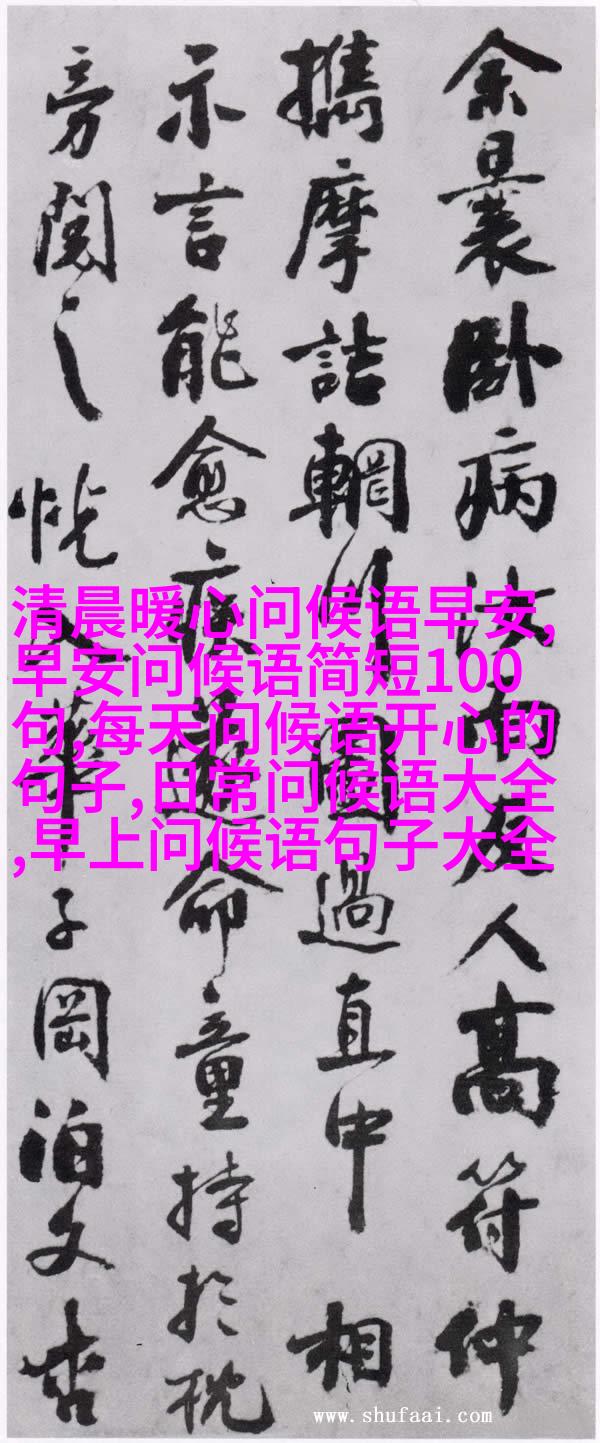 余曩卧病汝南友人高符仲
攜摩詰輞川圖過直中相
示言能愈疾遂命童持於枕
旁閱之恍入華子岡泊文杏
清晨暖心问候语早安,
早安问候语简短100
句,每天问候语开心的
句子,日常问候语大全
,早上问候语句子大全
www.shufaai.com